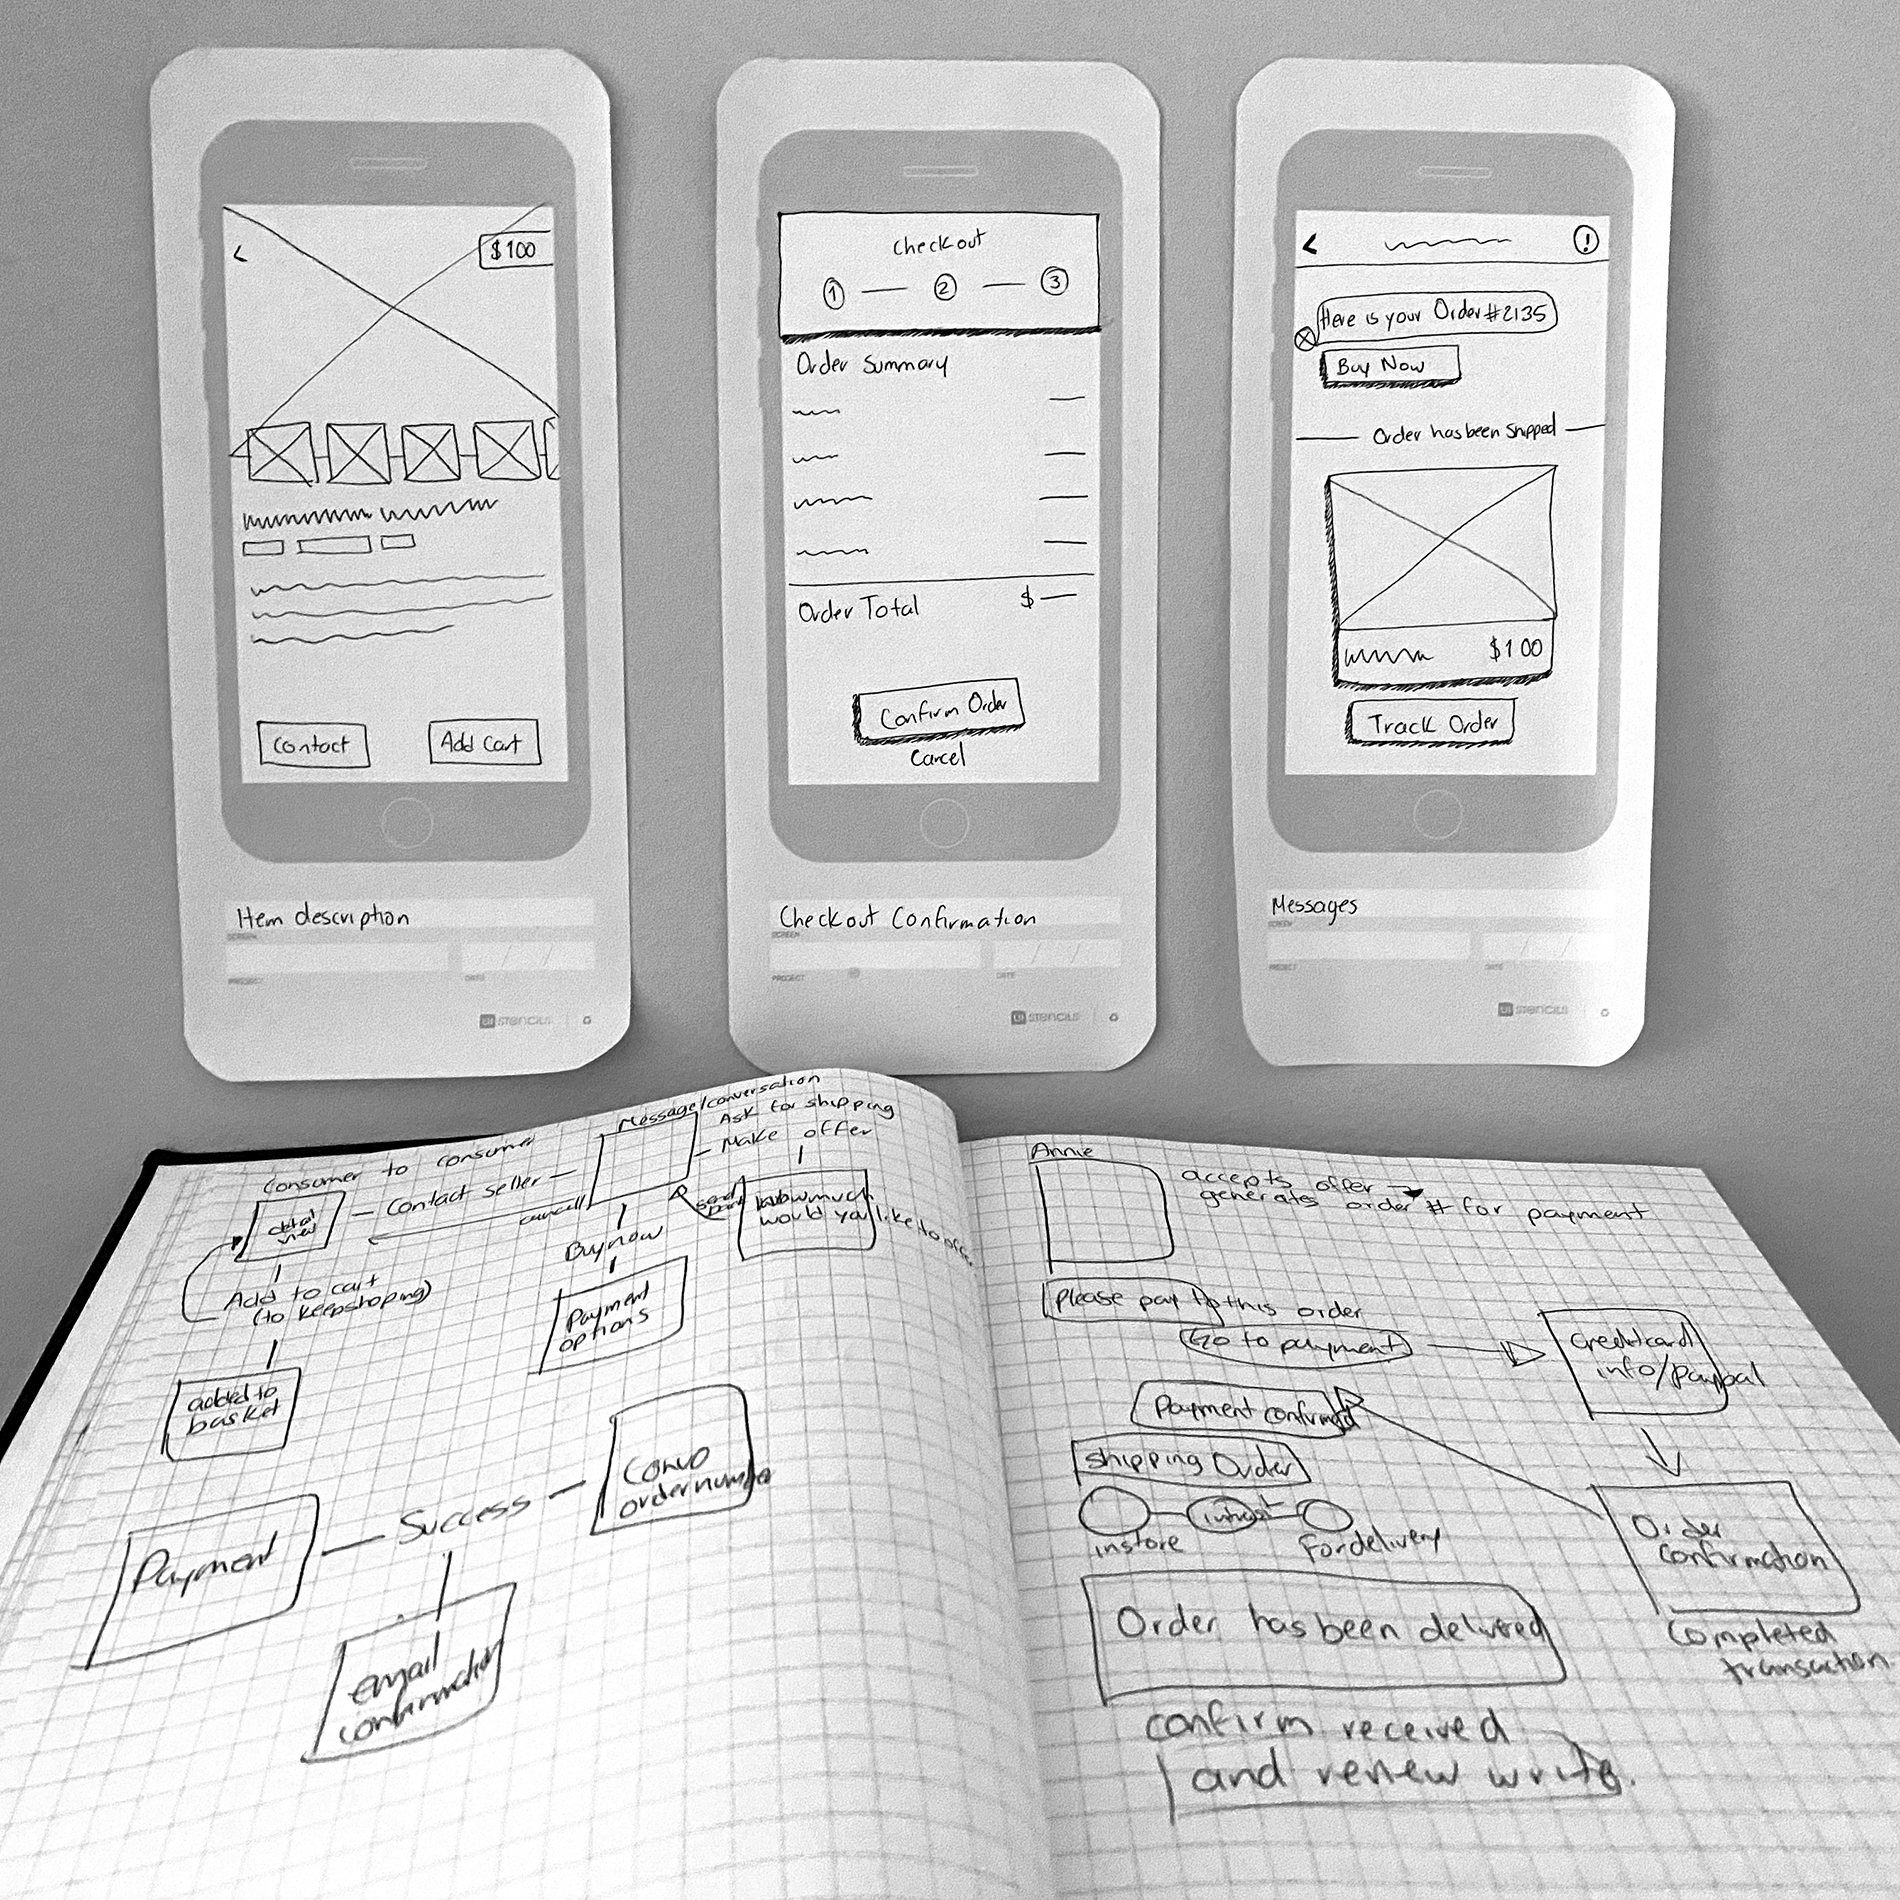 <
$100
Contact
Add Cart
Item description
SCREEN
PROJECT
DATE
UI STENCILS
Checkout
1 2 3
Order Summary
Order Total $
Confirm Order
Cancel
Checkout Confirmation
SCREEN
PROJECT
DATE
UI STENCILS
< !
Here is your Order #2135
Buy Now
Order has been shipped
$100
Track Order
Messages
SCREEN
PROJECT
DATE
UI STENCILS
Consumer to consumer
Message/conversation
Ask for shipping
Make offer
detail
view
Contact seller
cancel
send
how much
would you like to offer
Buy now
Payment
options
Add to cart
(to keepshoping)
added to
basket
Payment
Success
Convo
order number
email
confirmation
Annie
accepts offer
generates order # for payment
Please pay to this order
Go to payment
Creditcard
info/paypal
Payment confirmed
Shipping Order
instore
For delivery
Order
confirmation
Completed
transaction
Order has been delivered
confirm received
and renew write.